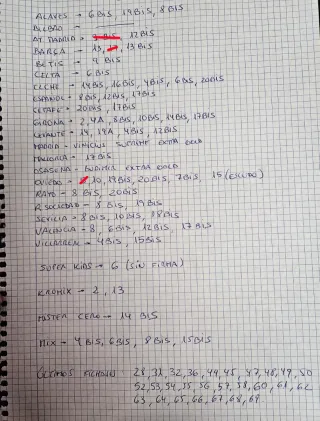 ALAVES → 6 BIS, 19 BIS, 8 BIS
BILBAO →
AT MADRID → 3 BIS, 12 BIS
BARÇA → 13, 13 BIS
BETIS → 9 BIS
CELTA → 6 BIS
ELCHE → 14 BIS, 16 BIS, 4 BIS, 6 BIS, 20 BIS
ESPAÑOL → 8 BIS, 12 BIS, 17 BIS
GETAFE → 20 BIS, 17 BIS
GIRONA → 2, 4A, 8 BIS, 10 BIS, 14 BIS, 17 BIS
LEVANTE → 14, 19A, 4 BIS, 12 BIS
MADRID → VINICIUS EXTRA GOLD
MALLORCA → 17 BIS
OSASUNA → BUDIMIR EXTRA GOLD
OVIEDO → 10, 19 BIS, 20 BIS, 7 BIS, 15 (ESCUDO)
RAYO → 8 BIS, 20 BIS
R SOCIEDAD → 8 BIS, 19 BIS
SEVILLA → 8 BIS, 10 BIS, 18 BIS
VALENCIA → 8, 6 BIS, 12 BIS, 17 BIS
VILLARREAL → 4 BIS, 15 BIS
SUPER KIDS → 6 (SIN FIRMA)
KROMIX → 2, 13
MISTER CERO → 14 BIS
MIX → 4 BIS, 6 BIS, 8 BIS, 15 BIS
ÚLTIMOS FICHAJES 28, 31, 32, 36, 44, 45, 47, 48, 49, 50
52, 53, 54, 55, 56, 57, 58, 60, 61, 62
63, 64, 65, 66, 67, 68, 69